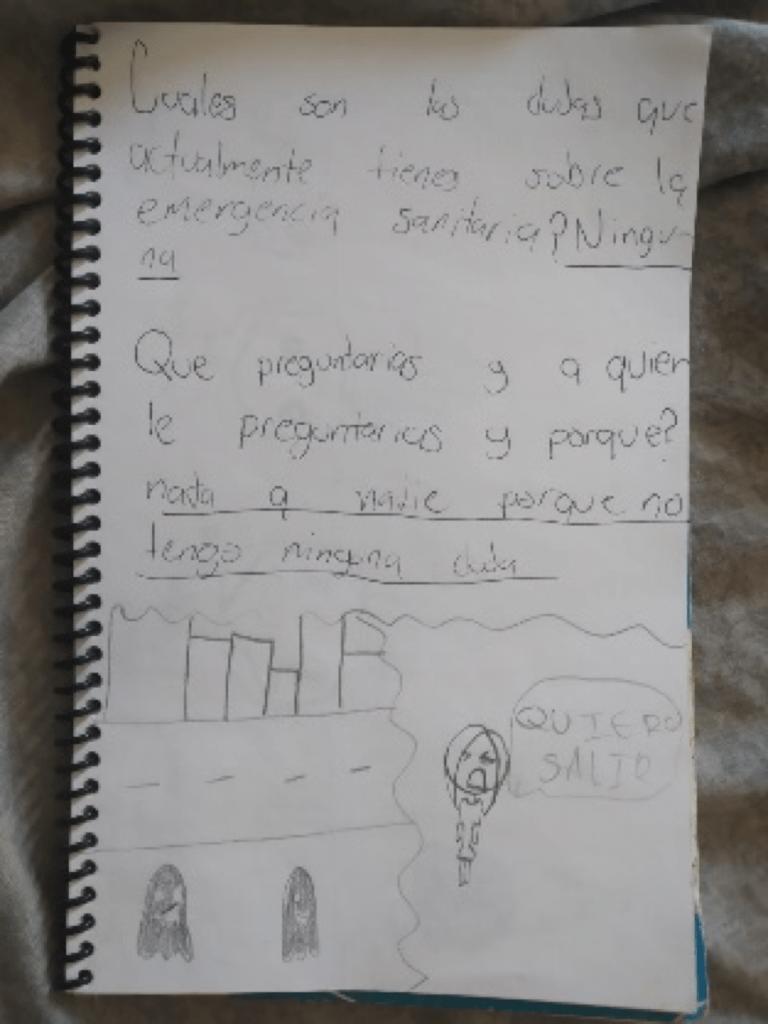 Cuales son las dudas que
actualmente tienes sobre la
emergencia sanitaria? Ningu-
na
Que preguntarias y a quien
le preguntarias y porque?
nada a nadie porque no
tengo ninguna duda
QUIERO
SALIR